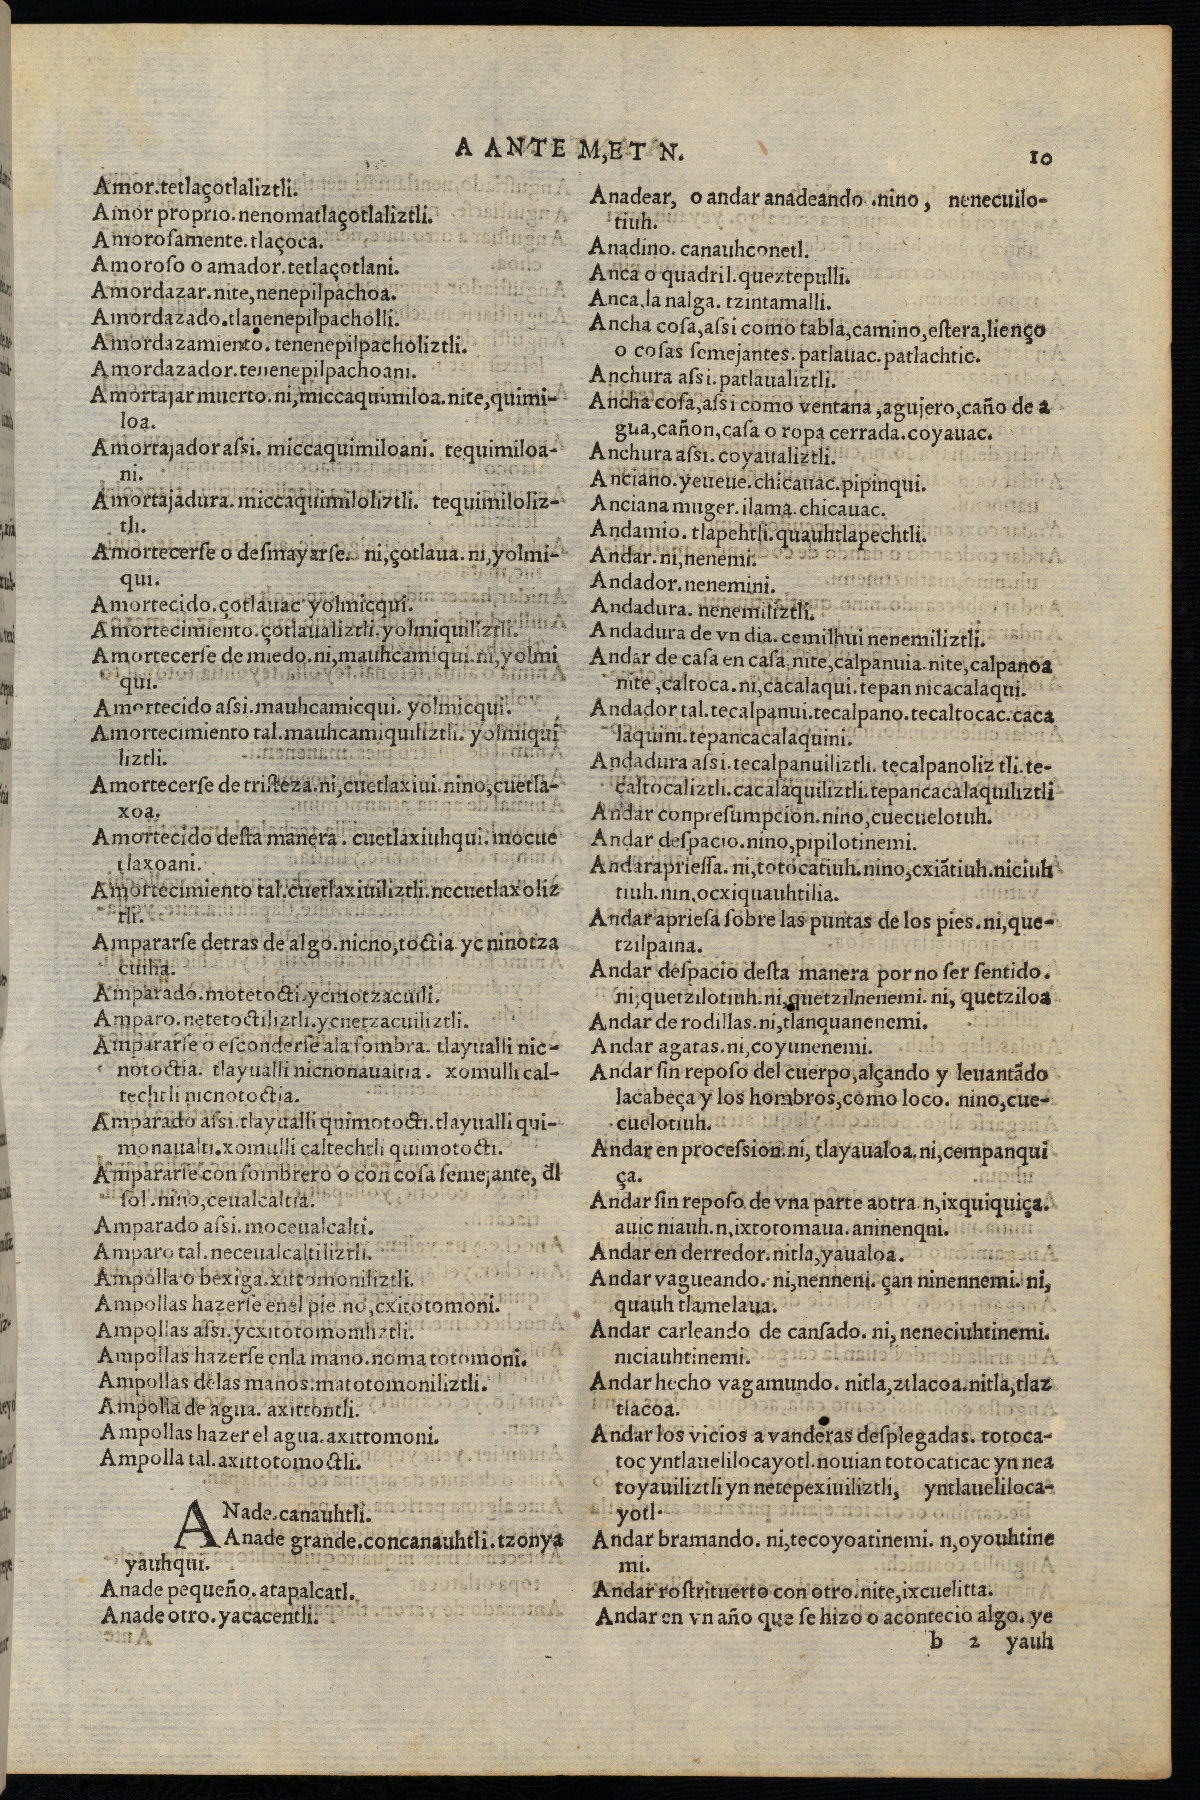 A ANTE M,ET N.
10
Amor.tetlaçotlaliztli.
Amor proprio.nenomatlaçotlaliztli.
Amorosamente.tlaçoca.
Amoroso o amador.tetlaçotlani.
Amordazar.nite,nenepilpachoa.
Amordazado.tlanenepilpacholli.
Amordazamiento. tenenepilpacholiztli.
Amordazador.tenenepilpachoani.
Amortajar muerto.ni,miccaquimiloa.nite,quimi-
loa.
Amortajador assi. miccaquimiloani. tequimiloa-
ni.
Amortajadura.miccaquimiloliztli. tequimiloliz-
tli.
Amortecerse o desmayarse. ni,çotlaua.ni,yolmi-
qui.
Amortecido.çotlauac yolmicqui.
Amortecimiento.çotlaualiztli.yolmiquiliztli.
Amortecerse de miedo.ni,mauhcamiqui.ni,yolmi
qui.
Amortecido assi.mauhcamicqui. yolmicqui.
Amortecimiento tal.mauhcamiquiliztli. yolmiqui
liztli.
Amortecerse de tristeza.ni,cuetlaxiui.nino,cuetla-
xoa.
Amortecido desta manera. cuetlaxiuhqui. mocue
tlaxoani.
Amortecimiento tal.cuetlaxiuiliztli.necuetlaxoliz
tli.
Ampararse detras de algo.nicno,toctia yc ninotza
cuilia.
Amparado.motetocti.ycmotzacuili.
Amparo.netetoctiliztli.ycnetzacuiliztli.
Ampararse o esconderse ala sombra. tlayualli nic-
notoctia. tlayualli nicnonaualtia. xomulli cal-
techtli nicnotoctia.
Amparado assi.tlayualli quimotocti.tlayualli qui-
monaualti.xomulli caltechtli quimotocti.
Ampararse con sombrero o con cosa semejante, đl
sol.nino,ceualcaltia.
Amparado assi.moceualcalti.
Amparo tal.neceualcaltiliztli.
Ampolla o bexiga.xittomoniliztli.
Ampollas hazerse enel pie.no,cxitotomoni.
Ampollas assi.ycxitotomoniliztli.
Ampollas hazerse enla mano.noma totomoni.
Ampollas delas manos.matotomoniliztli.
Ampolla de agua. axittontli.
Ampollas hazer el agua.axittomoni.
Ampolla tal.axittotomoctli.
ANade.canauhtli.
Anade grande.concanauhtli.tzonya
yauhqui.
Anade pequeño.atapalcatl.
Anade otro.yacacentli.
Anadear, o andar anadeando .nino, nenecuilo-
tiuh.
Anadino. canauhconetl.
Anca o quadril.queztepulli.
Anca,la nalga. tzintamalli.
Ancha cosa,assi como tabla,camino,estera,lienço
o cosas semejantes.patlauac.patlachtic.
Anchura assi.patlaualiztli.
Ancha cosa,assi como ventana,agujero,caño de a
gua,cañon,casa o ropa cerrada.coyauac.
Anchura assi.coyaualiztli.
Anciano.yeueue.chicauac.pipinqui.
Anciana muger.ilama.chicauac.
Andamio. tlapechtli.quauhtlapechtli.
Andar.ni,nenemi.
Andador.nenemini.
Andadura. nenemiliztli.
Andadura de vn dia. cemilhui nenemiliztli.
Andar de casa en casa.nite,calpanuia.nite,calpanoa
nite,caltoca.ni,cacalaqui.tepan nicacalaqui.
Andador tal.tecalpanui.tecalpano.tecaltocac.caca
laquini.tepancacalaquini.
Andadura assi.tecalpanuiliztli. tecalpanoliztli.te-
caltocaliztli.cacalaquiliztli.tepancacalaquiliztli
Andar conpresumpcion.nino,cuecuelotuh.
Andar despacio.nino,pipilotinemi.
Andarapriessa. ni,totocatiuh.nino,cxiãtiuh.niciuh
tiuh.nin,ocxiquauhtilia.
Andar apriesa sobre las puntas de los pies.ni,que-
tzilpaina.
Andar despacio desta manera por no ser sentido.
ni,quetzilotiuh.ni,quetzilnenemi. ni, quetziloa
Andar de rodillas.ni,tlanquanenemi.
Andar agatas.ni,coyunenemi.
Andar sin reposo del cuerpo,alçando y leuantãdo
lacabeça y los hombros,como loco. nino,cue-
cuelotiuh.
Andar en procession.ni, tlayaualoa.ni,cempanqui
ça.
Andar sin reposo de vna parte aotra.n,ixquiquiça.
auic niauh.n,ixtotomaua.aninenqni.
Andar en derredor.nitla,yaualoa.
Andar vagueando. ni,nenneni. çan ninennemi. ni,
quauh tlamelaua.
Andar carleando de cansado. ni,neneciuhtinemi.
niciauhtinemi.
Andar hecho vagamundo. nitla,ztlacoa.nitla,tlaz
tlacoa.
Andar los vicios a vanderas desplegadas. totoca-
toc yntlauelilocayotl.nouian totocaticac yn nea
toyauiliztli yn netepexiuiliztli, yntlaueliloca-
yotl.
Andar bramando. ni,tecoyoatinemi. n,oyouhtine
mi.
Andar rostrituerto con otro.nite,ixcuelitta.
Andar en vn año que se hizo o acontecio algo. ye
b 2 yauh